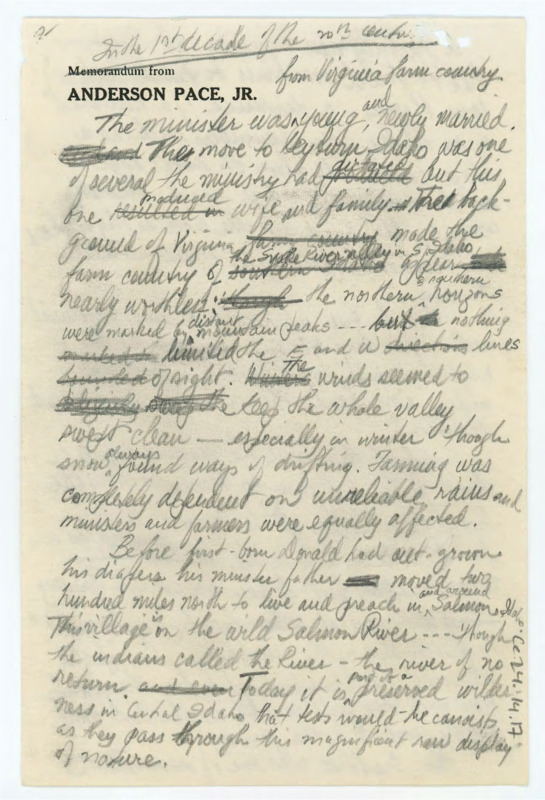 In the 1st decade of the 20th century
Memorandum from
ANDERSON PACE, JR.
from Virginia farm country.
The minister was young, and newly married.
The move to Heyburn Idaho was one
of several the ministry had dictated out this
one produced wife and family. The back-
ground of Virginia farm country made the
farm country of the Snake River valley in S. Idaho appear
nearly worthless. the northern & southern horizons
were marked by distant mountain peaks --- but nothing
limited the E and W lines
of sight. The winds seemed to
keep the whole valley
swept clean — especially in winter though
snow always found ways of drifting. Farming was
completely dependent on unreliable rains and
ministers and farmers were equally affected.
Before first-born Donald had out-grown
his diapers his minister father moved two
hundred miles north to live and preach in and around Salmon, Idaho.
This village is on the wild Salmon River --- though
the indians called the River - the river of no
return. and even Today it is part of a preserved wilder-
ness in Central Idaho that tests would-be canoists
as they pass through this magnificent raw display
of nature.